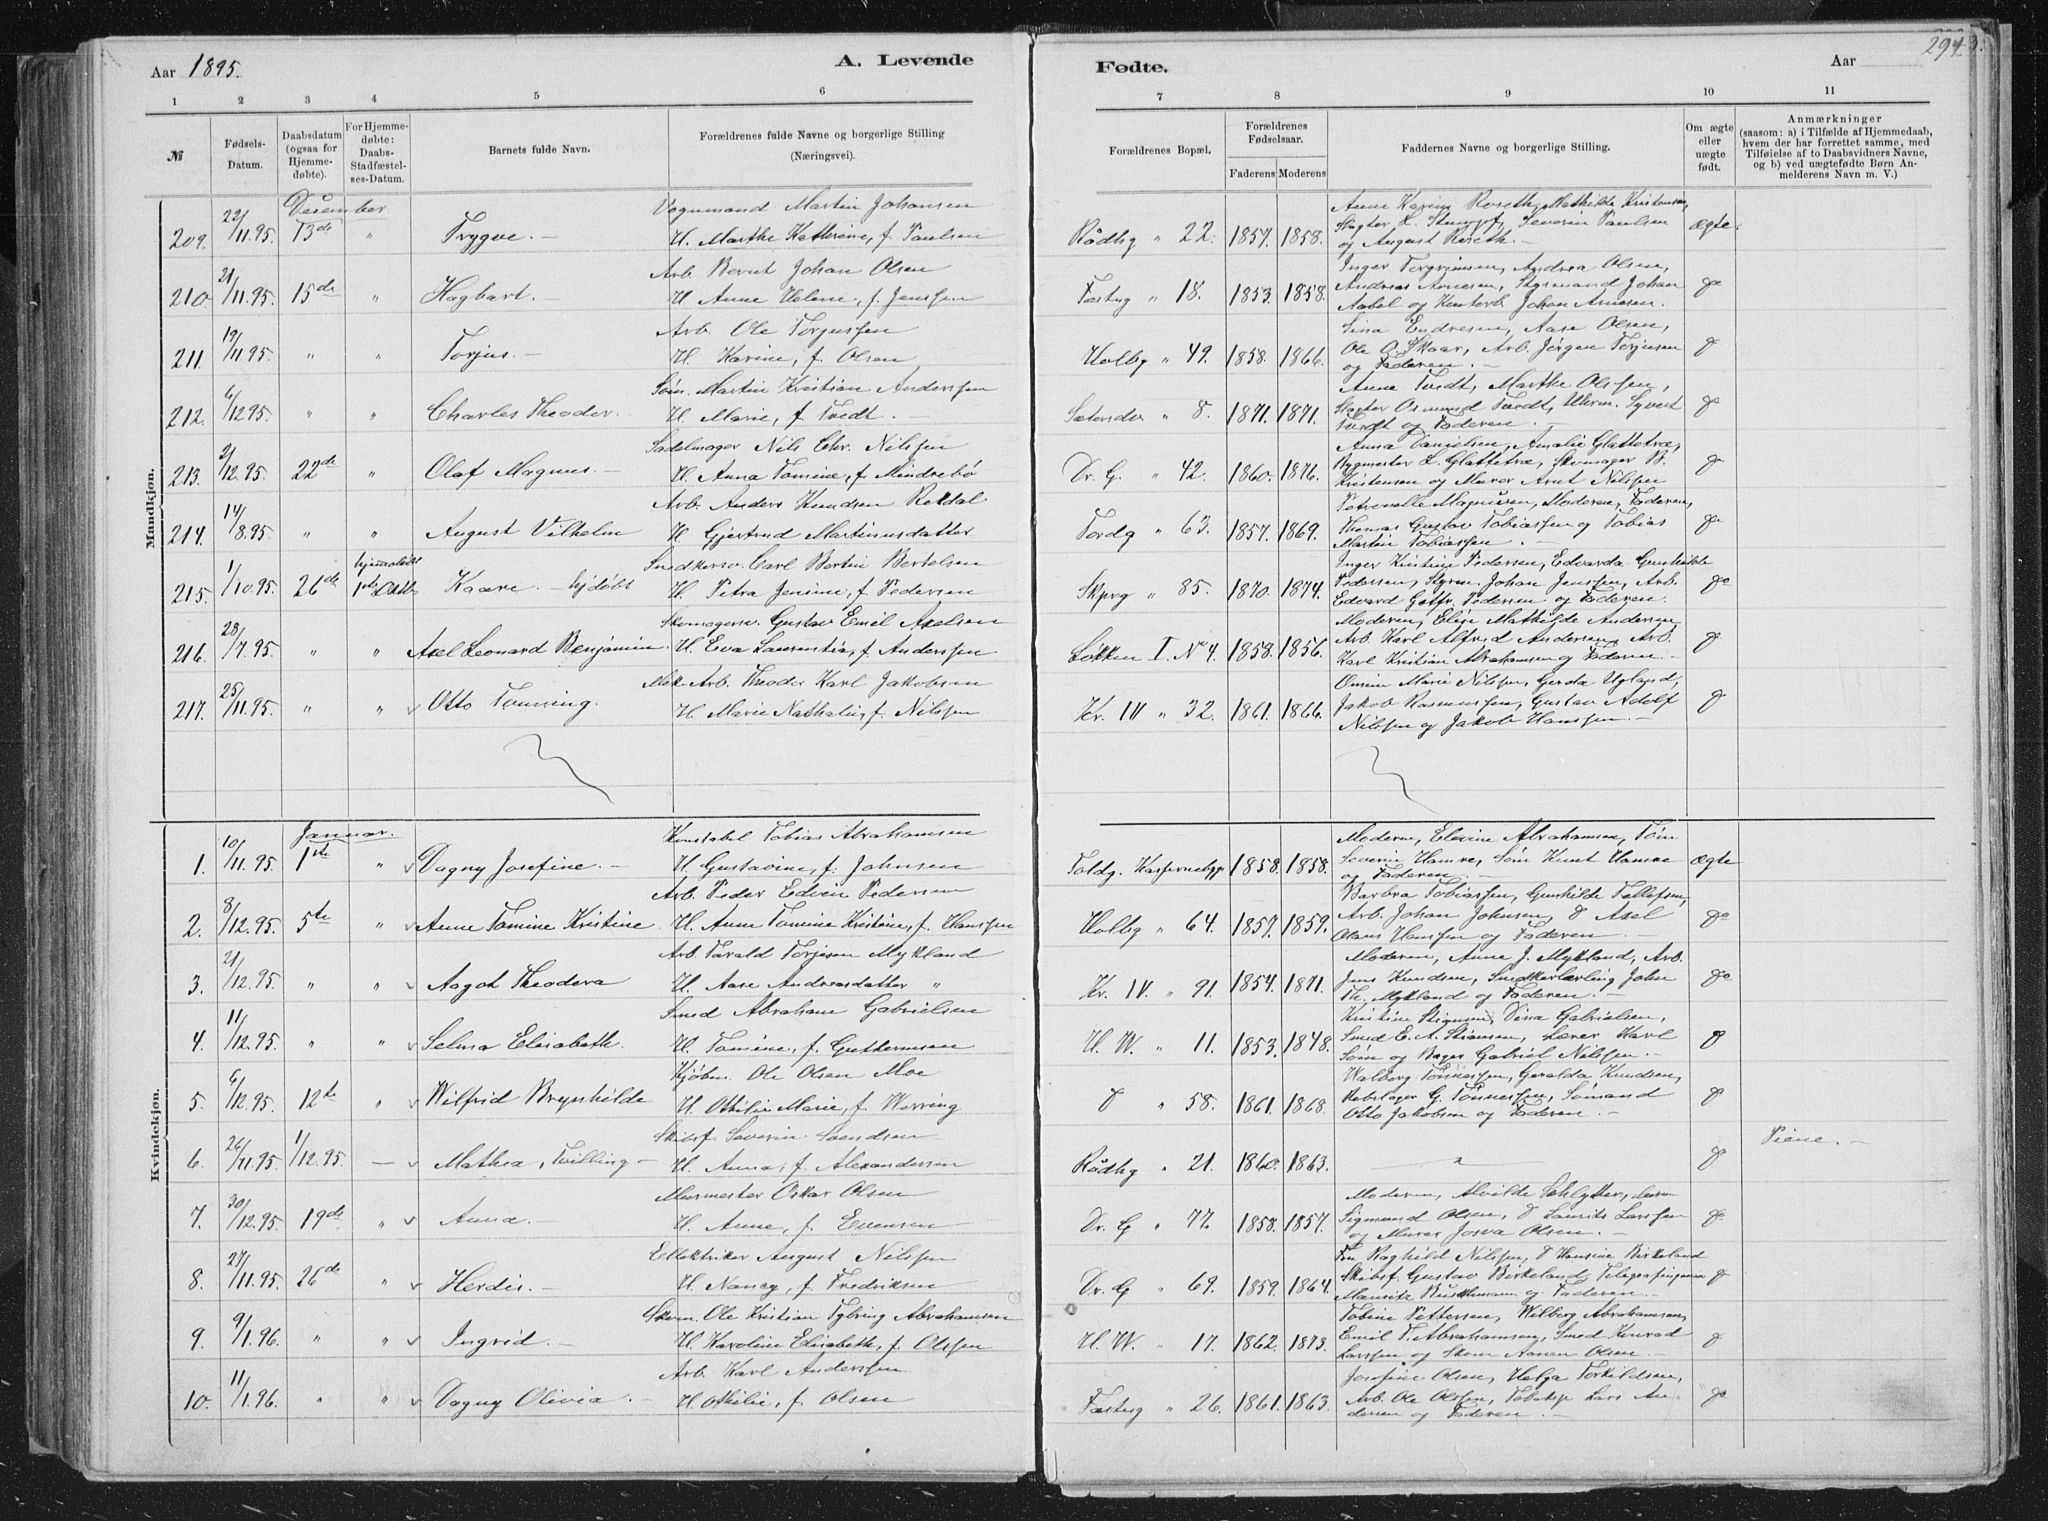 Aar 1895.
A. Levende
Fødte.
Aar
294
1 2 3 4 5 6 7 8 9 10 11
№
Fødsels-Datum.
Daabsdatum (ogsaa for Hjemme-døbte).
For Hjemme-døbte: Daabs-Stadfæstel-ses-Datum.
Barnets fulde Navn.
Forældrenes fulde Navne og borgerlige Stilling (Næringsvei).
Forældrenes Bopæl.
Forældrenes Fødselsaar.
Faderens Moderens
Faddernes Navne og borgerlige Stilling.
Om ægte eller uægte født.
Anmærkninger
(saasom: a) i Tilfælde af Hjemmedaab, hvem der har forrettet samme, med Tilføielse af to Daabsvidners Navne, og b) ved uægtefødte Børn An-melderens Navn m. V.)
Mundkjøn.
December
Vognmand Martin Johansen
Anne Karine Roseth, Mathilde Kristensen,
209. 22/11.95. 13de " Trygve. — H. Marthe Kathrine, f. Paulsen Rådhg " 22. 1857. 1858. Slagter L. Stumpf, Severin Paulsen ægte
og August Roseth. —
Arb. Bernt Johan Olsen
Inger Torgrimsen, Andrea Olsen,
210. 21/11.95. 15de " Hagbart. — H. Anne Helene, f. Jenssen Fæstng " 18. 1853. 1858. Andreas Arnesen, Styrmand Johan do
Aabel og Kontorb. Johan Arnesen.
Arb. Ole Torjussen
Sina Endresen, Aase Olsen,
211. 19/11.95. " " Torjus. — H. Karine, f. Olsen Holbg " 49. 1858. 1866. Ole O. Skaar, Arb. Jørgen Torjusen do
og Faderen. —
Søm. Martin Kristian Anderssen
Anne Tvedt, Marthe Olssen,
212. 6/12.95 " " Charles Theodor. H. Marie, f. Tvedt. — Sætersdv " 8. 1871. 1871. Slagter Osmund Tvedt, Uhrm. Syvert do
Tvedt og Faderen. —
Sadelmager Nils Chr. Nilssen
Anna Danielsen, Amalie Glattetræ,
213. 2/12.95. 22de " Olaf Magnus. — H. Anna Tomine, f. Mindrebø Dr. G. " 42. 1860. 1876. Bygmester L. Glattetræ, Skomager B. do
Kristensen og Murer Arnt Nilssen
Arb. Anders Knudsen Rekdal
Petronelle Magnusen, Moderen, Faderen,
214. 14/8.95. " " August Vilhelm H. Gjertrud Martinusdatter Tordg " 63. 1857. 1869. Thomas Gustav Tobiassen og Tobias do
Martin Tobiassen. —
hjemdøbt
Snedkersv. Carl Bertin Bertelsen
Inger Kristine Pedersen, Edvarda Gunhilde
215. 1/10.95. 26de 1ste Oktbr Kaare. — hjdøbt H. Petra Jensine, f. Pedersen Skprg " 85. 1870. 1874. Pedersen, Styrm. Johan Jenssen, Arb. do
Edvard Gotfr. Pedersen og Faderen.
Skomagersv. Gustav Emil Axelsen
Moderen, Elise Mathilde Andersen
216. 28/7.95. " " Axel Leonard Benjamin. H. Eva Laurentia, f. Anderssen Løkken I. No 4. 1858. 1856. Arb. Karl Alfred Andersen, Arb. do
Karl Kristian Abrahamsen og Faderen. —
Mek. Arb. Theodor Karl Jakobsen
Marie Nilssen, Gerda Ugland,
217. 25/11.95. " " Otto Tønning. H. Marie Nathalie, f. Nilssen Kr. IV " 32. 1861. 1866. Jakob Rasmussen, Gustav Adolf do
Nilssen og Jakob Hanssen. —
Kvindekjøn.
Januar.
Konstabel Tobias Abrahamsen
Moderen, Elevine Abrahamsen, Tøm
1. 10/11.95. 1ste " Dagny Josefine. — H. Gustavine, f. Johnsen Toldg. Kasernebygg 1858. 1858. Severin Hamre, Søm Knut Hamre ægte
og Faderen. —
Arb. Peder Edvin Pedersen
Barbra Tobiassen, Gunhilde Tellefsen,
2. 8/12.95. 5te " Anne Tomine Kristine. H. Anne Tomine Kristine, f. Hanssen Holbg " 64. 1857. 1859. Arb. Johan Johnsen, do Axel do
Olaus Hanssen og Faderen. —
Arb. Tarald Torjesen Mykland
Moderen, Anne J. Mykland, Arb.
3. 21/12.95. " " Aagot Theodora H. Aase Andreasdatter " Kr. IV. " 91. 1854. 1871. Jens Knudsen, Snedkerlærling John do
Th. Mykland og Faderen. —
Smed Abraham Gabrielsen
Kristine Stiansen, Dina Gabrielsen,
4. 11/12.95. " " Selma Elisabeth. H. Tomine, f. Guttormsen H. W. " 11. 1853. 1848. Smed E. A. Stiansen, Lærer Karl do
Søm og Bager Gabriel Nilssen. —
Kjøbm. Ole Olsen Moe
Walborg Tønnessen, Geralda Knudsen,
5. 6/12.95. 12te " Wilfrid Brynhilde H. Othilie Marie, f. Werring do " 58. 1861. 1868. Rebslager G. Tønnessen, Sømand do
Otto Jakobsen og Faderen. —
Skibsf. Severin Svendsen
Piene. —
6. 26/11.95. 1/12.95. — Mathea, Tvilling — H. Anna, f. Alexandersen Rådhg " 21. 1860. 1863. do
Murmester Oskar Olsen
Moderen, Alvilde Schlytter, Murer
7. 30/12.95. 19de " Anna. — H. Anne, f. Evensen Dr. G " 77. 1858. 1857. Sigmund Olsen, do Laurits Larssen do
og Murer Josva Olsen. —
Ellektriker August Nilssen
Fru Raghild Nilssen, do Hansine Birkeland
8. 27/11.95. 26de " Herdis. — H. Nancy, f. Fredriksen Dr. G " 69. 1859. 1864. Skibsf. Gustav Birkeland, do
Mauritz og Faderen. —
Skom. Ole Kristian Tybring Abrahamsen
Tobine Pettersen, Wilborg Abrahamsen,
9. 9/1.96. " " Ingrid. — H. Karoline Elisabeth, f. Olssen H. W. " 17. 1862. 1873. Emil T. Abrahamsen, Smed Konrad do
Larssen og Skom Aanen Olsen. —
Arb. Karl Anderssen
Josefine Olsen, Helga Torkildsen,
10. 11/1.96. " " Dagny Olivia. — H. Othilie, f. Olsen Fæstng " 26. 1861. 1863. Arb. Ole Olssen, Lars An- do
dersen og Faderen. —